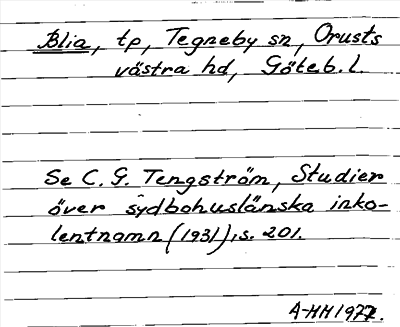 Blia, tp, Tegneby sn, Orusts
västra hd, Göteb. l.
Se C. G. Tengström, Studier
över sydbohuslänska inko-
lentnamn (1931), s. 201.
A-HH 1977.